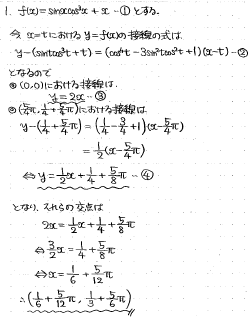 1. f(x)=sinxcos³x + x …① とする。
今 x=tにおける y=f(x)の接線の式は
y-(sintcos³t+t) = (cos⁴t-3sin²tcos²t+1)(x-t) …②
となるので
(0,0)における接線は、
y=2x …③
(5/4π, 1/4+5/4π)における接線は
y-(1/4+5/4π) = (1/4-3/4+1)(x-5/4π)
= 1/2(x-5/4π)
⇔ y=1/2x+1/4+5/8π …④
となり、それらの交点は
2x=1/2x+1/4+5/8π
⇔ 3/2x=1/4+5/8π
⇔ x=1/6+5/12π
∴(1/6+5/12π, 1/3+5/6π)